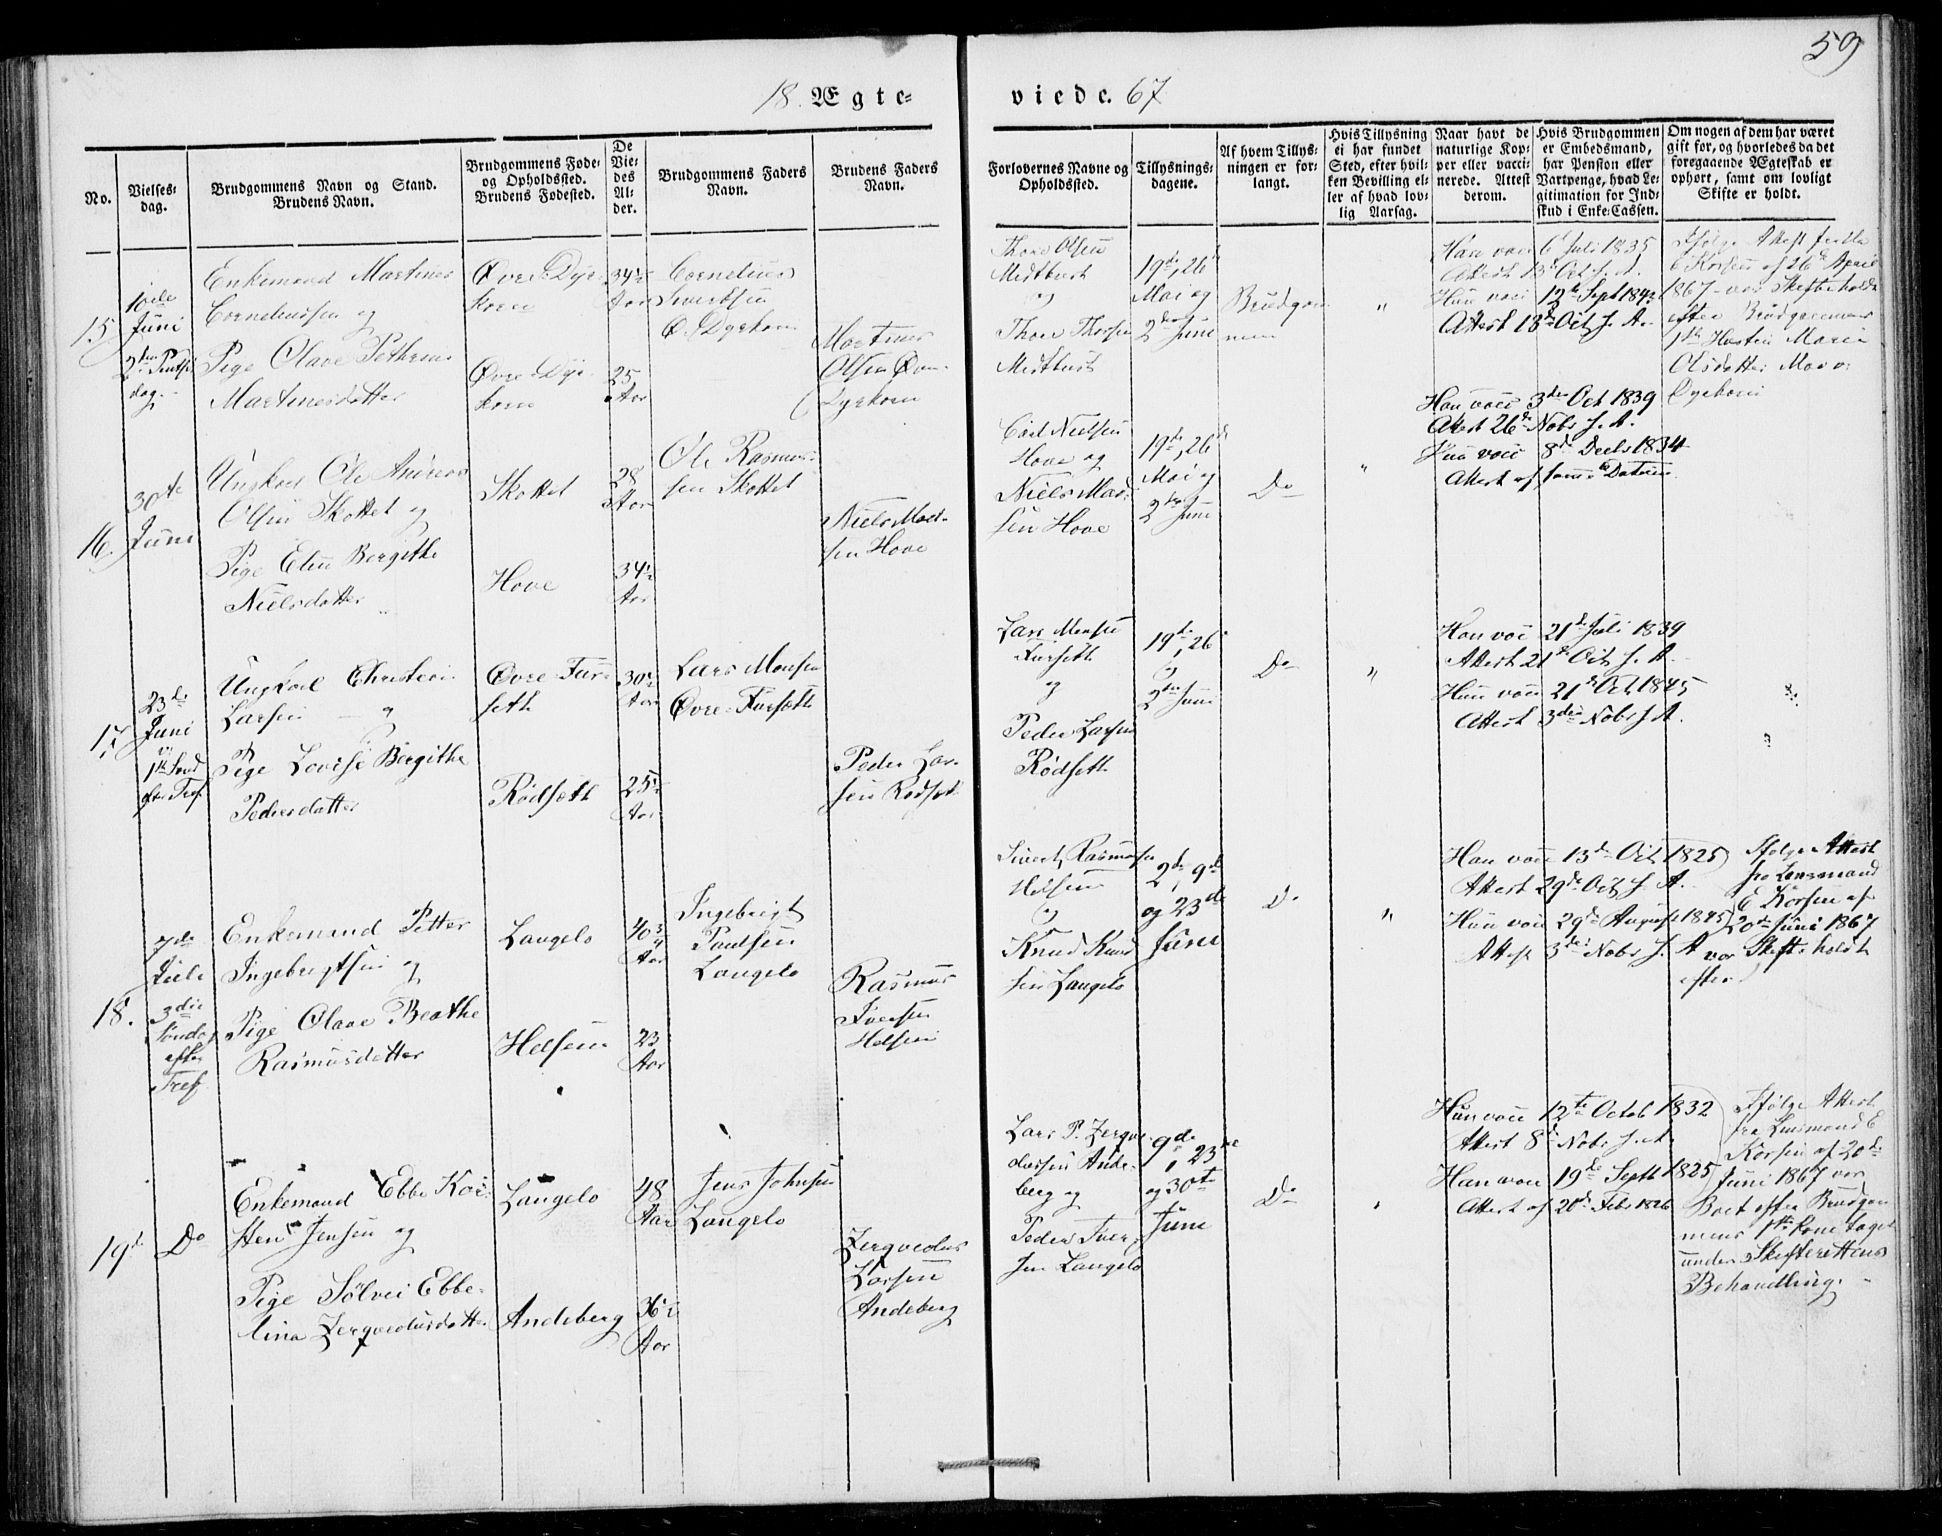 59
18. Ægte-
viede. 67
No.
Vielses-
dag.
Brudgommens Navn og Stand.
Brudens Navn.
Brudgommens Føde-
og Opholdssted.
Brudens Fødested.
De
Vie-
des
Al-
der.
Brudgommens Faders
Navn.
Brudens Faders
Navn.
Forlovernes Navne og
Opholdssted.
Tillysnings-
dagene.
Af hvem Tillys-
ningen er for-
langt.
Hvis Tillysning
ei har fundet
Sted, efter hvil-
ken Bevilling el-
ler af hvad lov-
lig Aarsag.
Naar havt de
naturlige Kop-
per eller vacci-
nerede. Attest
derom.
Hvis Brudgommen
er Embedsmand,
har Pension eller
Vartpenge, hvad Le-
gitimation for Ind-
skud i Enke-Cassen.
Om nogen af dem har været
gift før, og hvorledes da det
foregaaende Ægteskab er
ophørt, samt om lovligt
Skifte er holdt.
15
10de
Juni
2den Pintse
dag.
Enkemand Martinus
Corneliussen og
Pige Olave Pethrine
Martinusdatter
Øvre-Dyr-
korn
Øvre-Dyr-
korn
34½
Aar
25
Aar
Cornelius
Sivertsen
Ø. Dyrkorn
Martinus
Olsen Øvre-
Dyrkorn
Thore Olsen
Melthust
og
Thore Thorsen
Melthust
19de, 26de
Mai og
2den Juni
Brudgom
men
"
Han vacc 6te Juli 1835
Attest 13de Oct. s. A.
Hun vacc 12te Sept 1842
Attest 18de Oct s. A.
Ifølge Attest fra
E Korsen af 26de April
1867 var Skifte holdt
efter Brudgommens
1ste Hustru Marie
Olsdatter
16.
30te
Juni
Ungkarl Ole Andreas
Olsen Skottet og
Pige Elen Bergithe
Nielsdatter
Skottet
Hove
28
Aar
34½
Aar
Ole Rasmus-
sen Skottet
Niels Mad-
sen Hove
Carl Nielsen
Hove og
Niels Mad-
sen Hove
19de, 26de
Mai og
2den Juni
Do
"
Han vacc 3die Oct 1839
Attest 26de Nobr s. A.
Hun vacc 8de Decbr 1834
Attest af samme Datum
17.
23de
Juni
1ste Sønd
efter Tref.
Ungkarl Christian
Larsen og
Pige Lovise Bergithe
Pedersdatter
Øvre-Fur-
seth
Rødseth
30½
Aar
25½
Aar
Lars Monsen
Øvre-Furseth
Peder Lar-
sen Rødset
Lars Monsen
Furseth
og
Peder Larsen
Rødseth
19de, 26de
og
2den Juni
Do
"
Han vacc 21de Juli 1839
Attest 21de Oct s. A.
Hun vacc 21de Oct 1845
Attest 3die Nobr s. A.
18.
7de
Juli
3die
Søndag
efter
Tref
Enkemand Petter
Ingebrigtsen og
Pige Olave Beathe
Rasmusdatter
Langelo
Helsem
40¾
Aar
23
Aar
Ingebrigt
Paulsen
Langelo
Rasmus
Iversen
Helsem
Sivert Rasmusen
Helsem
og
Knud Knud
sen Langelo
2den, 9de
og 23de
Juni
Do
"
Han vacc 13de Oct 1825
Attest 29de Oct s. A.
Hun vacc 29de August 1845
Attest 3die Nobr s. A
Ifølge Attest
fra Lensmand
E Korsen af
20de Juni 1867
var Skifte holdt
efter
19de
Do
Enkemand Ebbe Kar-
sten Jensen og
Pige Sølvei Ebbe-
lina Zergvedusdatter
Langelo
Andeberg
48
Aar
36½
Aar
Jens Johnsen
Langelo
Zergvedus
Larsen
Andeberg
Lars P. Zergve-
dussen Ande-
berg og
Peder Iver-
sen Langelo
9de, 23de
og 30te
Juni
Do
"
Hun vacc 12te Octob 1832
Attest 8de Nobr s. A.
Han vacc 19de Septb 1825
Attest af 20de Febr 1826
Ifølge Attest
fra Lensmand E
Korsen af 20de
Juni 1867 var
Boet efter Brudgom
mens 1ste Kone taget
under Skifterettens
Behandling.